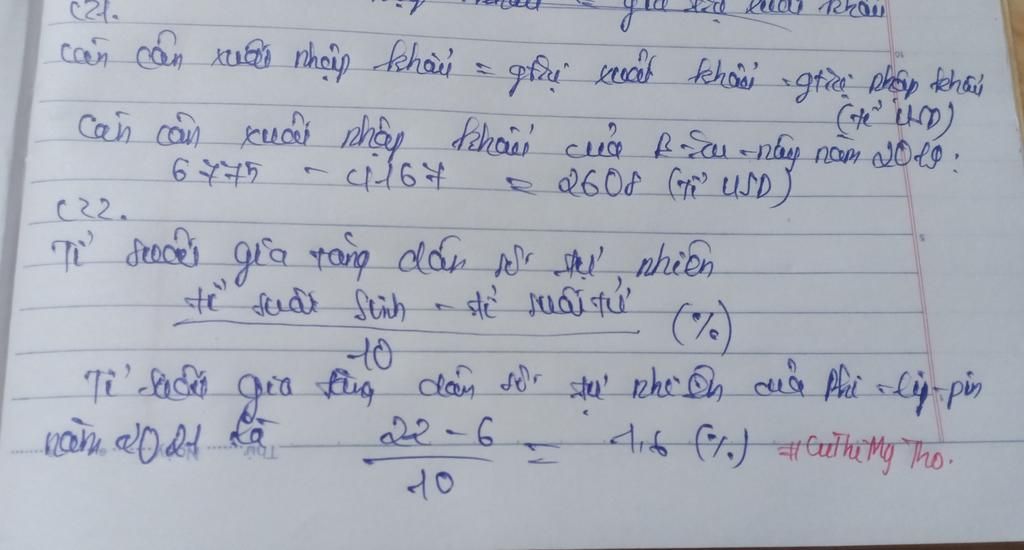 = giá trị xuất khẩu
C21.
Cán cân xuất nhập khẩu = gtrị xuất khẩu - gtrị nhập khẩu
(tỉ USD)
Cán cân xuất nhập khẩu của năm 2019:
6775 - 4167 = 2608 (tỉ USD)
C22.
Tỉ suất gia tăng dân số tự nhiên
tỉ suất sinh - tỉ suất tử (%)
10
Tỉ suất gia tăng dân số tự nhiên của Phi-lip-pin
năm 2021 là 22 - 6 = 1,6 (%) #CuThiMyTho.
10